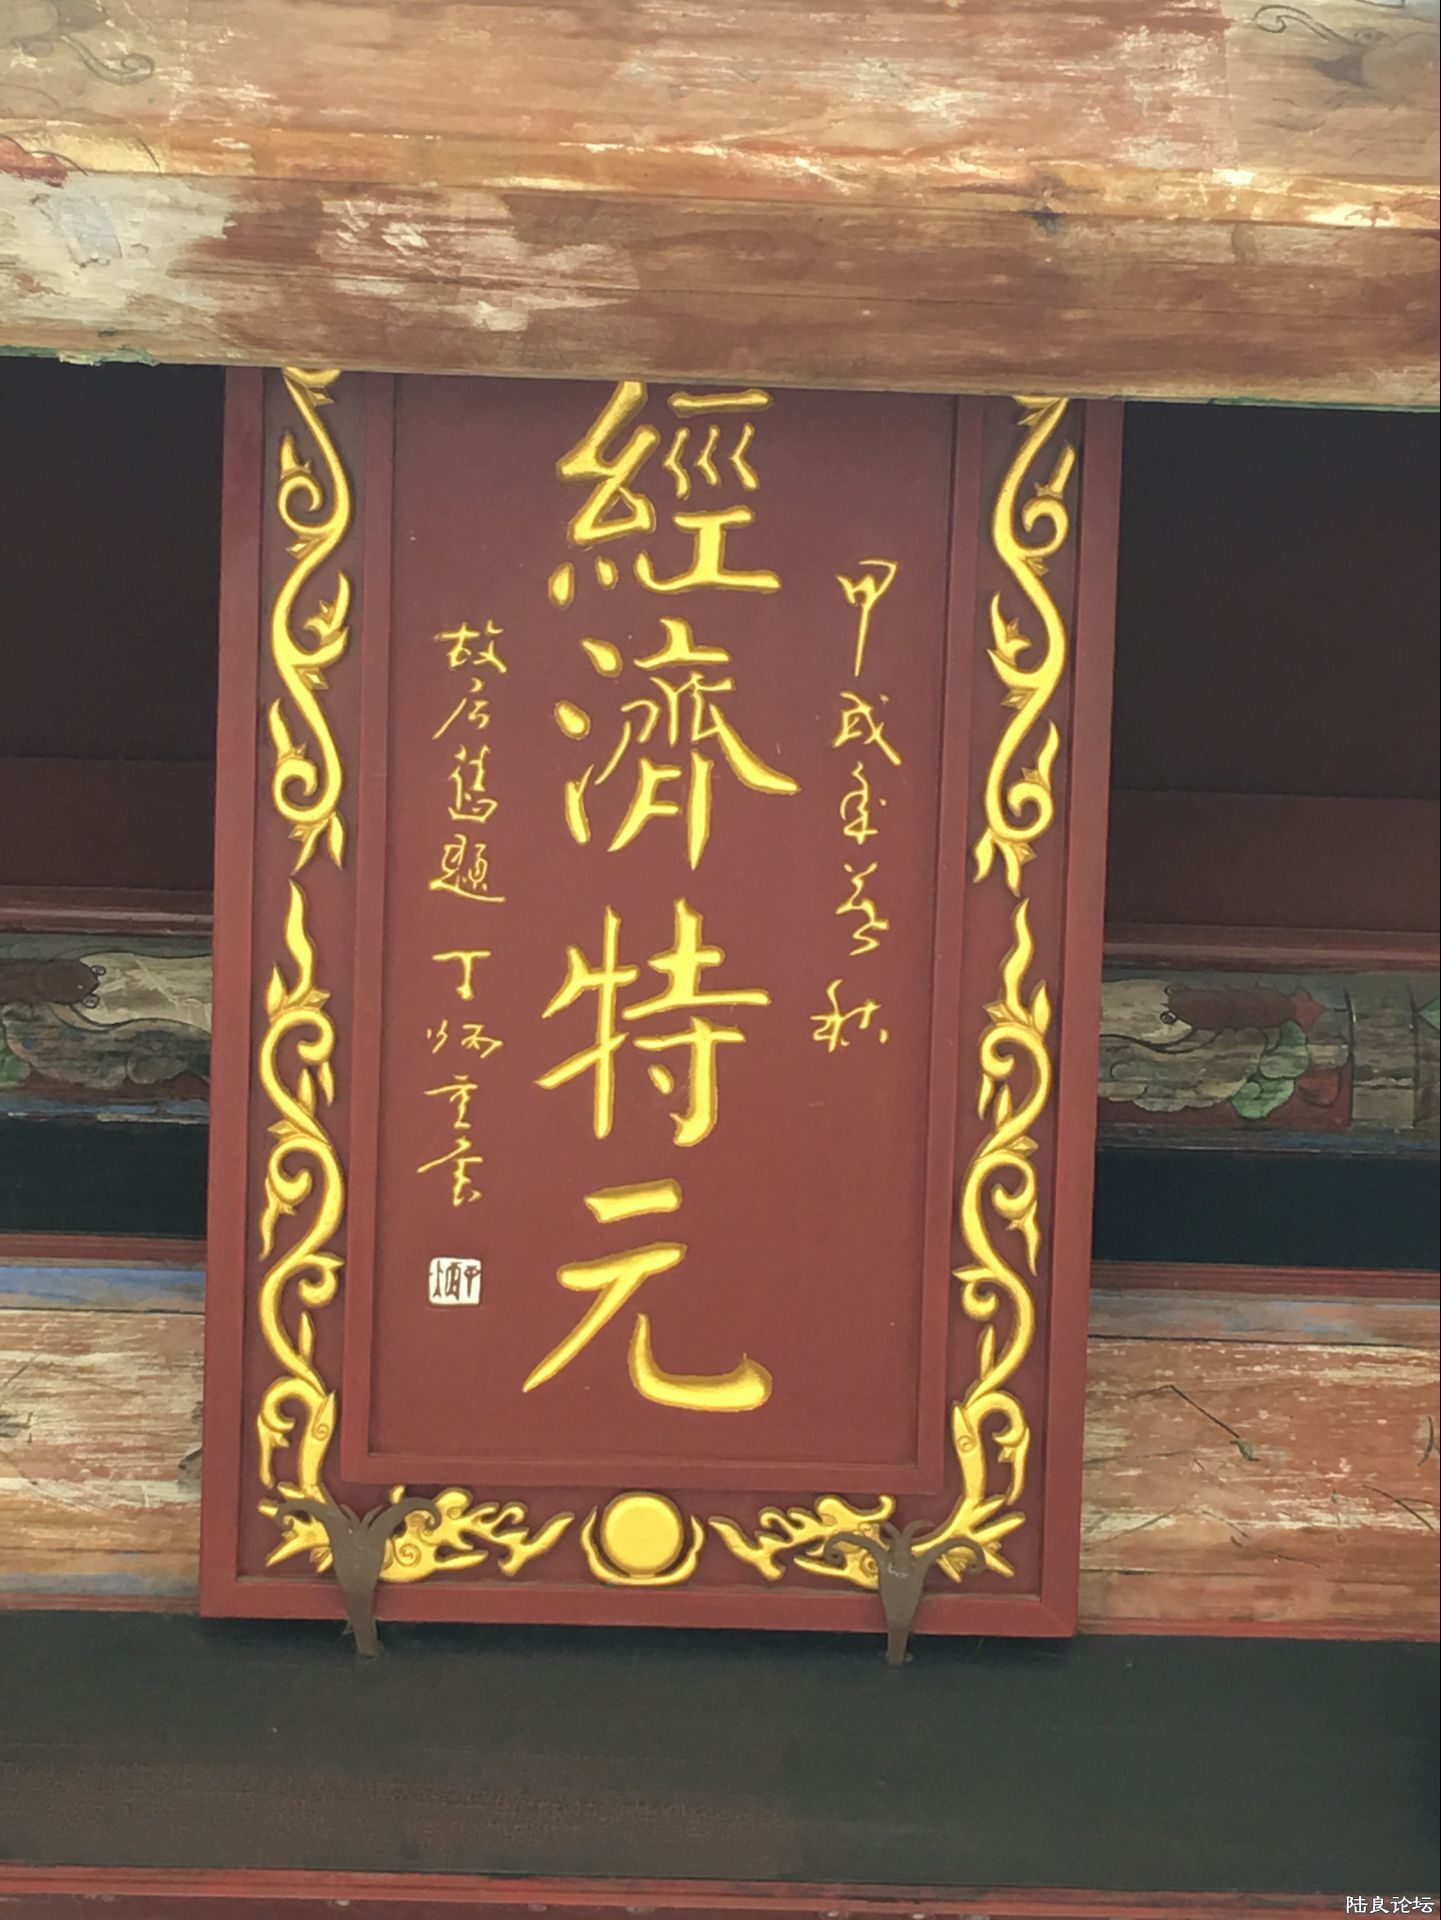 甲戌年暮秋
經濟特元
故居舊題 丁炳重書
陆良论坛